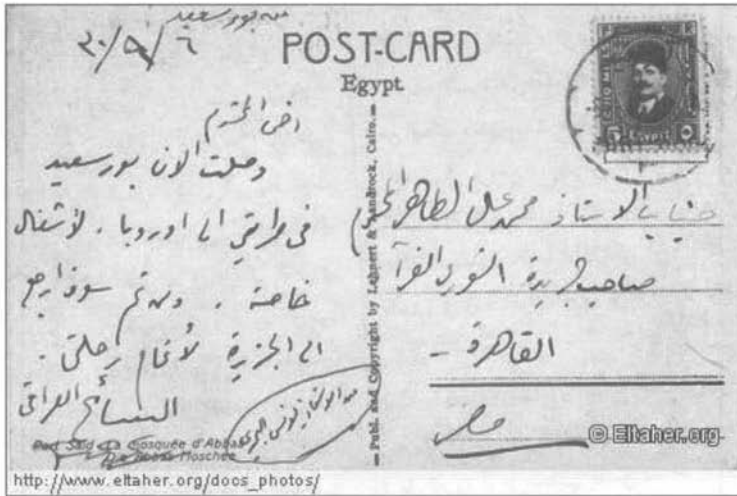 من بور سعيد
٦/٩/٣٠
POST-CARD
Egypt
اخي المحترم
وصلت الان بور سعيد
في طريقي الى اوروبا . لأشغال
خاصة . ومن ثم سوف ارجع
الى الجزيرة لأتمام رحلتي .
السائح العراقي
يونس البحري
Port Said Mosquée d'Abbas
Die Abbas Moschee
Publ. and Copyright by Lehnert & Landrock, Cairo.
Egypt
جناب الاستاذ محمد علي الطاهر المحترم
صاحب جريدة الشورى الغراء
القاهرة -
مصر
© Eltaher.org
http://www.eltaher.org/docs_photos/